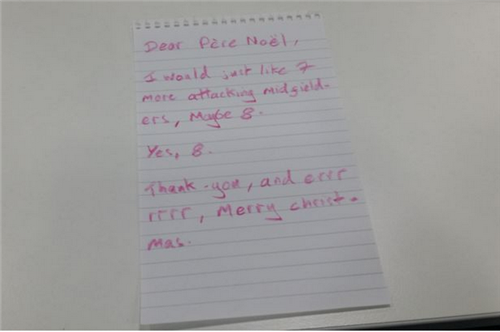 Dear Père Noël,
I would just like 7
more attacking midgield-
ers, Maybe 8.
Yes, 8.
Thank-you, and errr
rrrr, Merry christ-
mas.